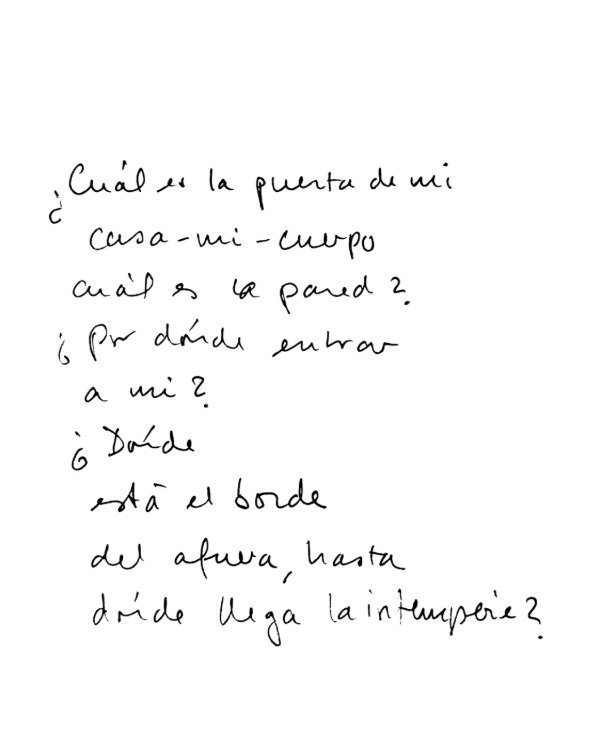 ¿Cuál es la puerta de mi
casa-mi-cuerpo
cuál es la pared?
¿Por dónde entrar
a mi?
¿Dónde
está el borde
del afuera, hasta
dónde llega la intemperie?